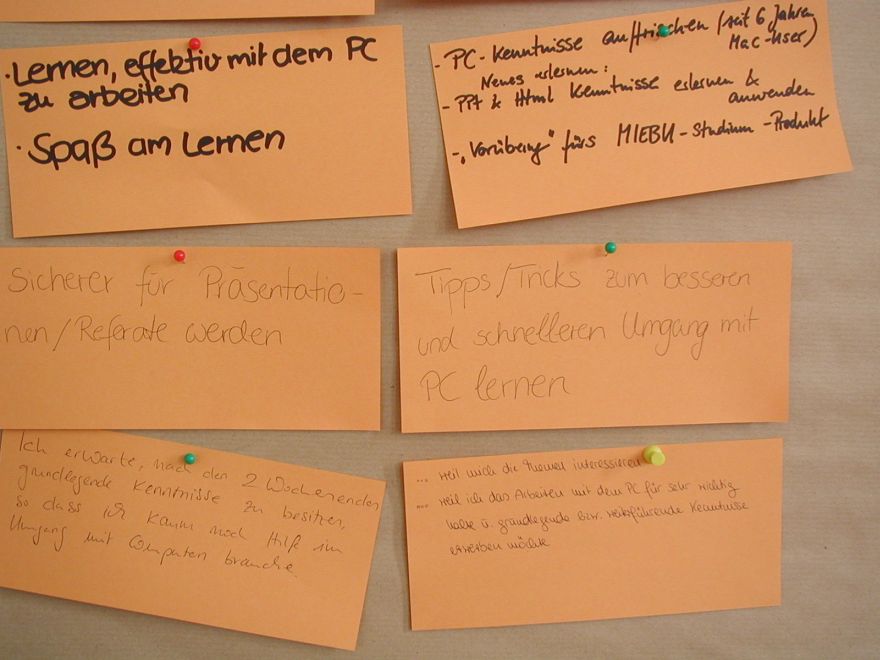 · Lernen, effektiv mit dem PC
zu arbeiten
· Spaß am Lernen
- PC-Kenntnisse auffrischen (seit 6 Jahren
Mac-User)
Neues erlernen:
- PPt & Html Kenntnisse erlernen &
anwenden
- „Vorübung" fürs MIEBU-Studium-Produkt
Sicherer für Präsentatio-
nen/Referate werden
Tipps/Tricks zum besseren
und schnelleren Umgang mit
PC lernen
Ich erwarte, nach den 2 Wochenenden
grundlegende Kenntnisse zu besitzen,
so dass ich kaum noch Hilfe im
Umgang mit Computern brauche.
... weil mich die Themen interessieren
... weil ich das Arbeiten mit dem PC für sehr wichtig
halte u. grundlegende bzw. weiterführende Kenntnisse
erwerben möchte